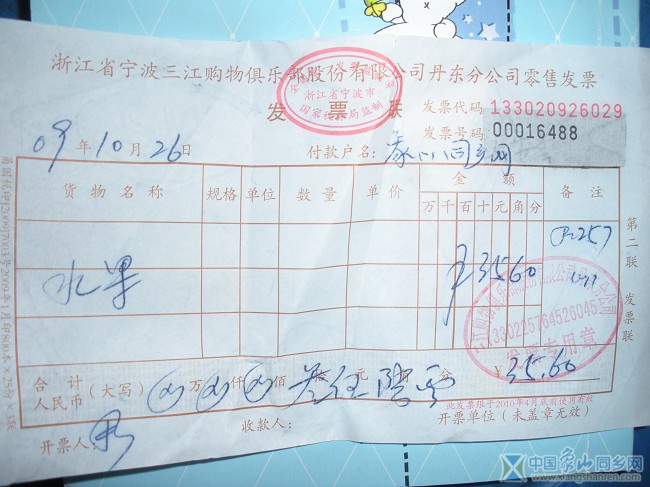 浙江省宁波三江购物俱乐部股份有限公司丹东分公司零售发票
浙江省宁波市
国家税务局监制
发票联
发票代码 133020926029
发票号码 00016488
09年10月26日
付款户名:象山同乡网
货物名称 规格 单位 数量 单价 金额 备注
万千百十元角分
水果 ¥3560
合计人民币(大写) 万 仟 佰 元 分 ¥35.60
此发票限于2010年4月底前使用有效
开票人: 收款人: 开票单位(未盖章无效)
第二联 发票联
330225764526045
中国象山同乡网
www.xiangshanren.com